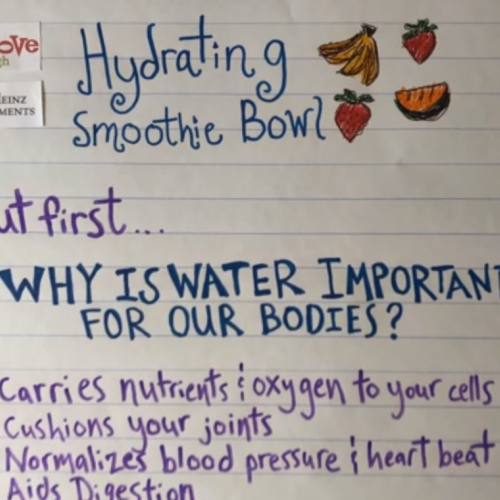 ove
gh
Hydrating
EINZ
MENTS
Smoothie Bowl
ut first...
WHY IS WATER IMPORTANT
FOR OUR BODIES?
Carries nutrients & oxygen to your cells
Cushions your joints
Normalizes blood pressure & heart beat
Aids Digestion